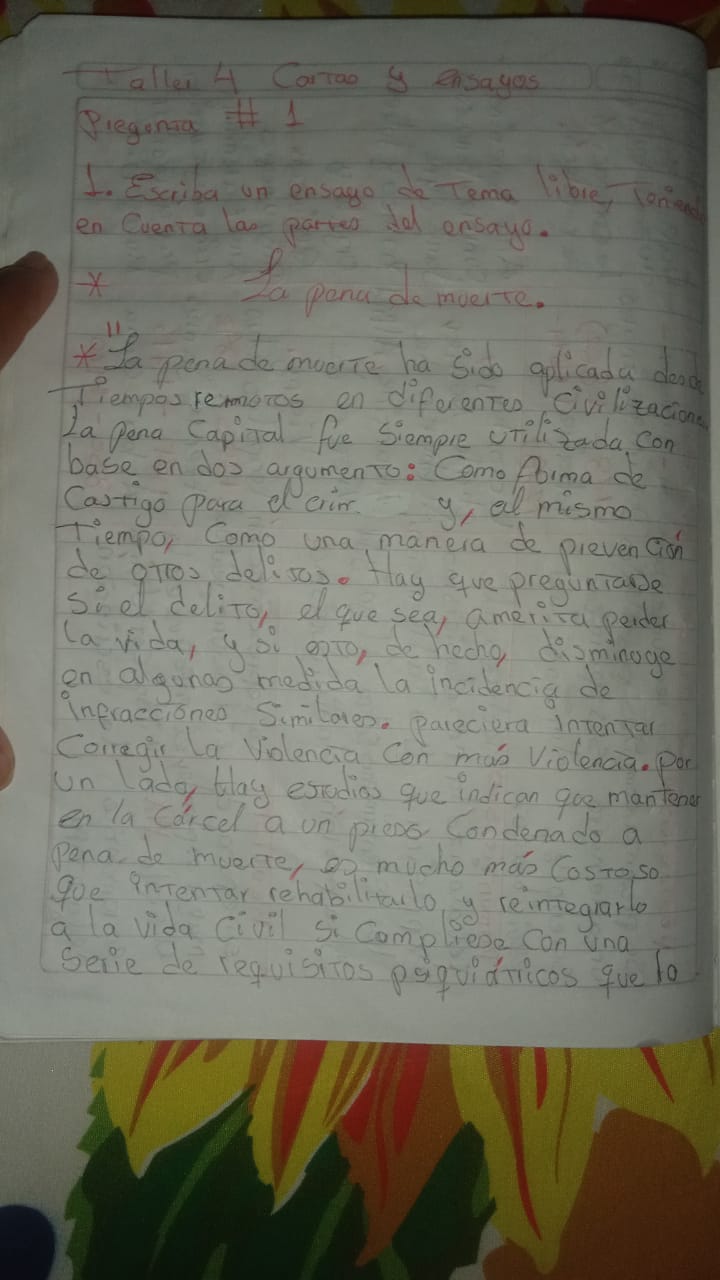 Taller 4 Cartas y ensayos
Pregunta # 1
1. Escriba un ensayo de Tema libre, Teniendo
en Cuenta las partes del ensayo.
* La pena de muerte.
* "La pena de muerte ha sido aplicada desde
Tiempos remotos en diferentes civilizaciones
La pena Capital fue siempre utilizada con
base en dos argumento: Como forma de
Castigo para el crim y, al mismo
Tiempo, Como una manera de prevención
de otros delitos. Hay que preguntarse
si el delito, el que sea, amerita perder
la vida, y si esto, de hecho, disminuye
en algunas medida la incidencia de
infracciones similares. pareciera intentar
Corregir la violencia con más violencia. por
un lado, Hay estudios que indican que mantener
en la cárcel a un preso Condenado a
pena de muerte, es mucho más costoso
que intentar rehabilitarlo y reintegrarlo
a la vida civil si Compliese con una
serie de requisitos psiquiátricos que lo